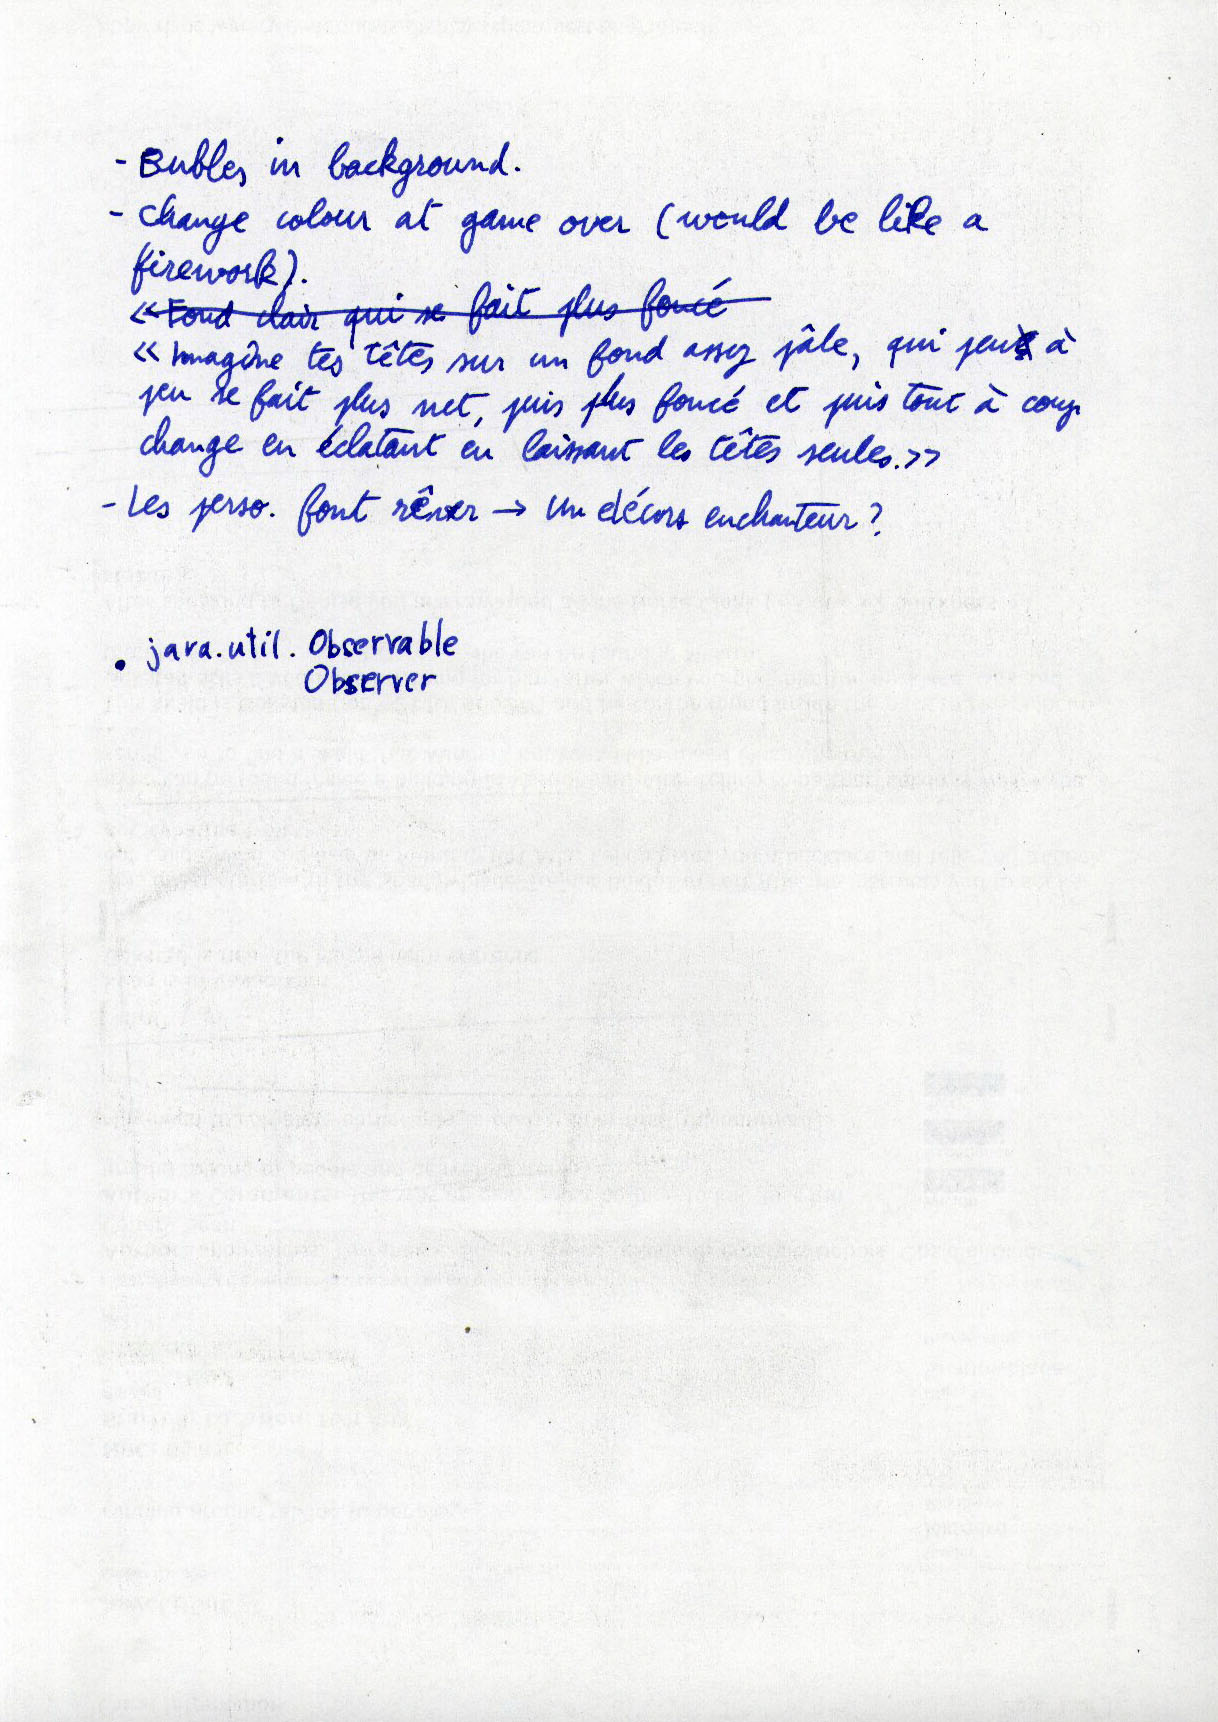 - Bubles in background.
- Change colour at game over (would be like a
firework).
« Fond clair qui se fait plus foncé
« Imagine tes têtes sur un fond assez pâle, qui peu à
peu se fait plus net, puis plus foncé et puis tout à coup
change en éclatant en laissant les têtes seules.»
- Les perso. font rêver → Un décors enchanteur ?
• java.util. Observable
Observer